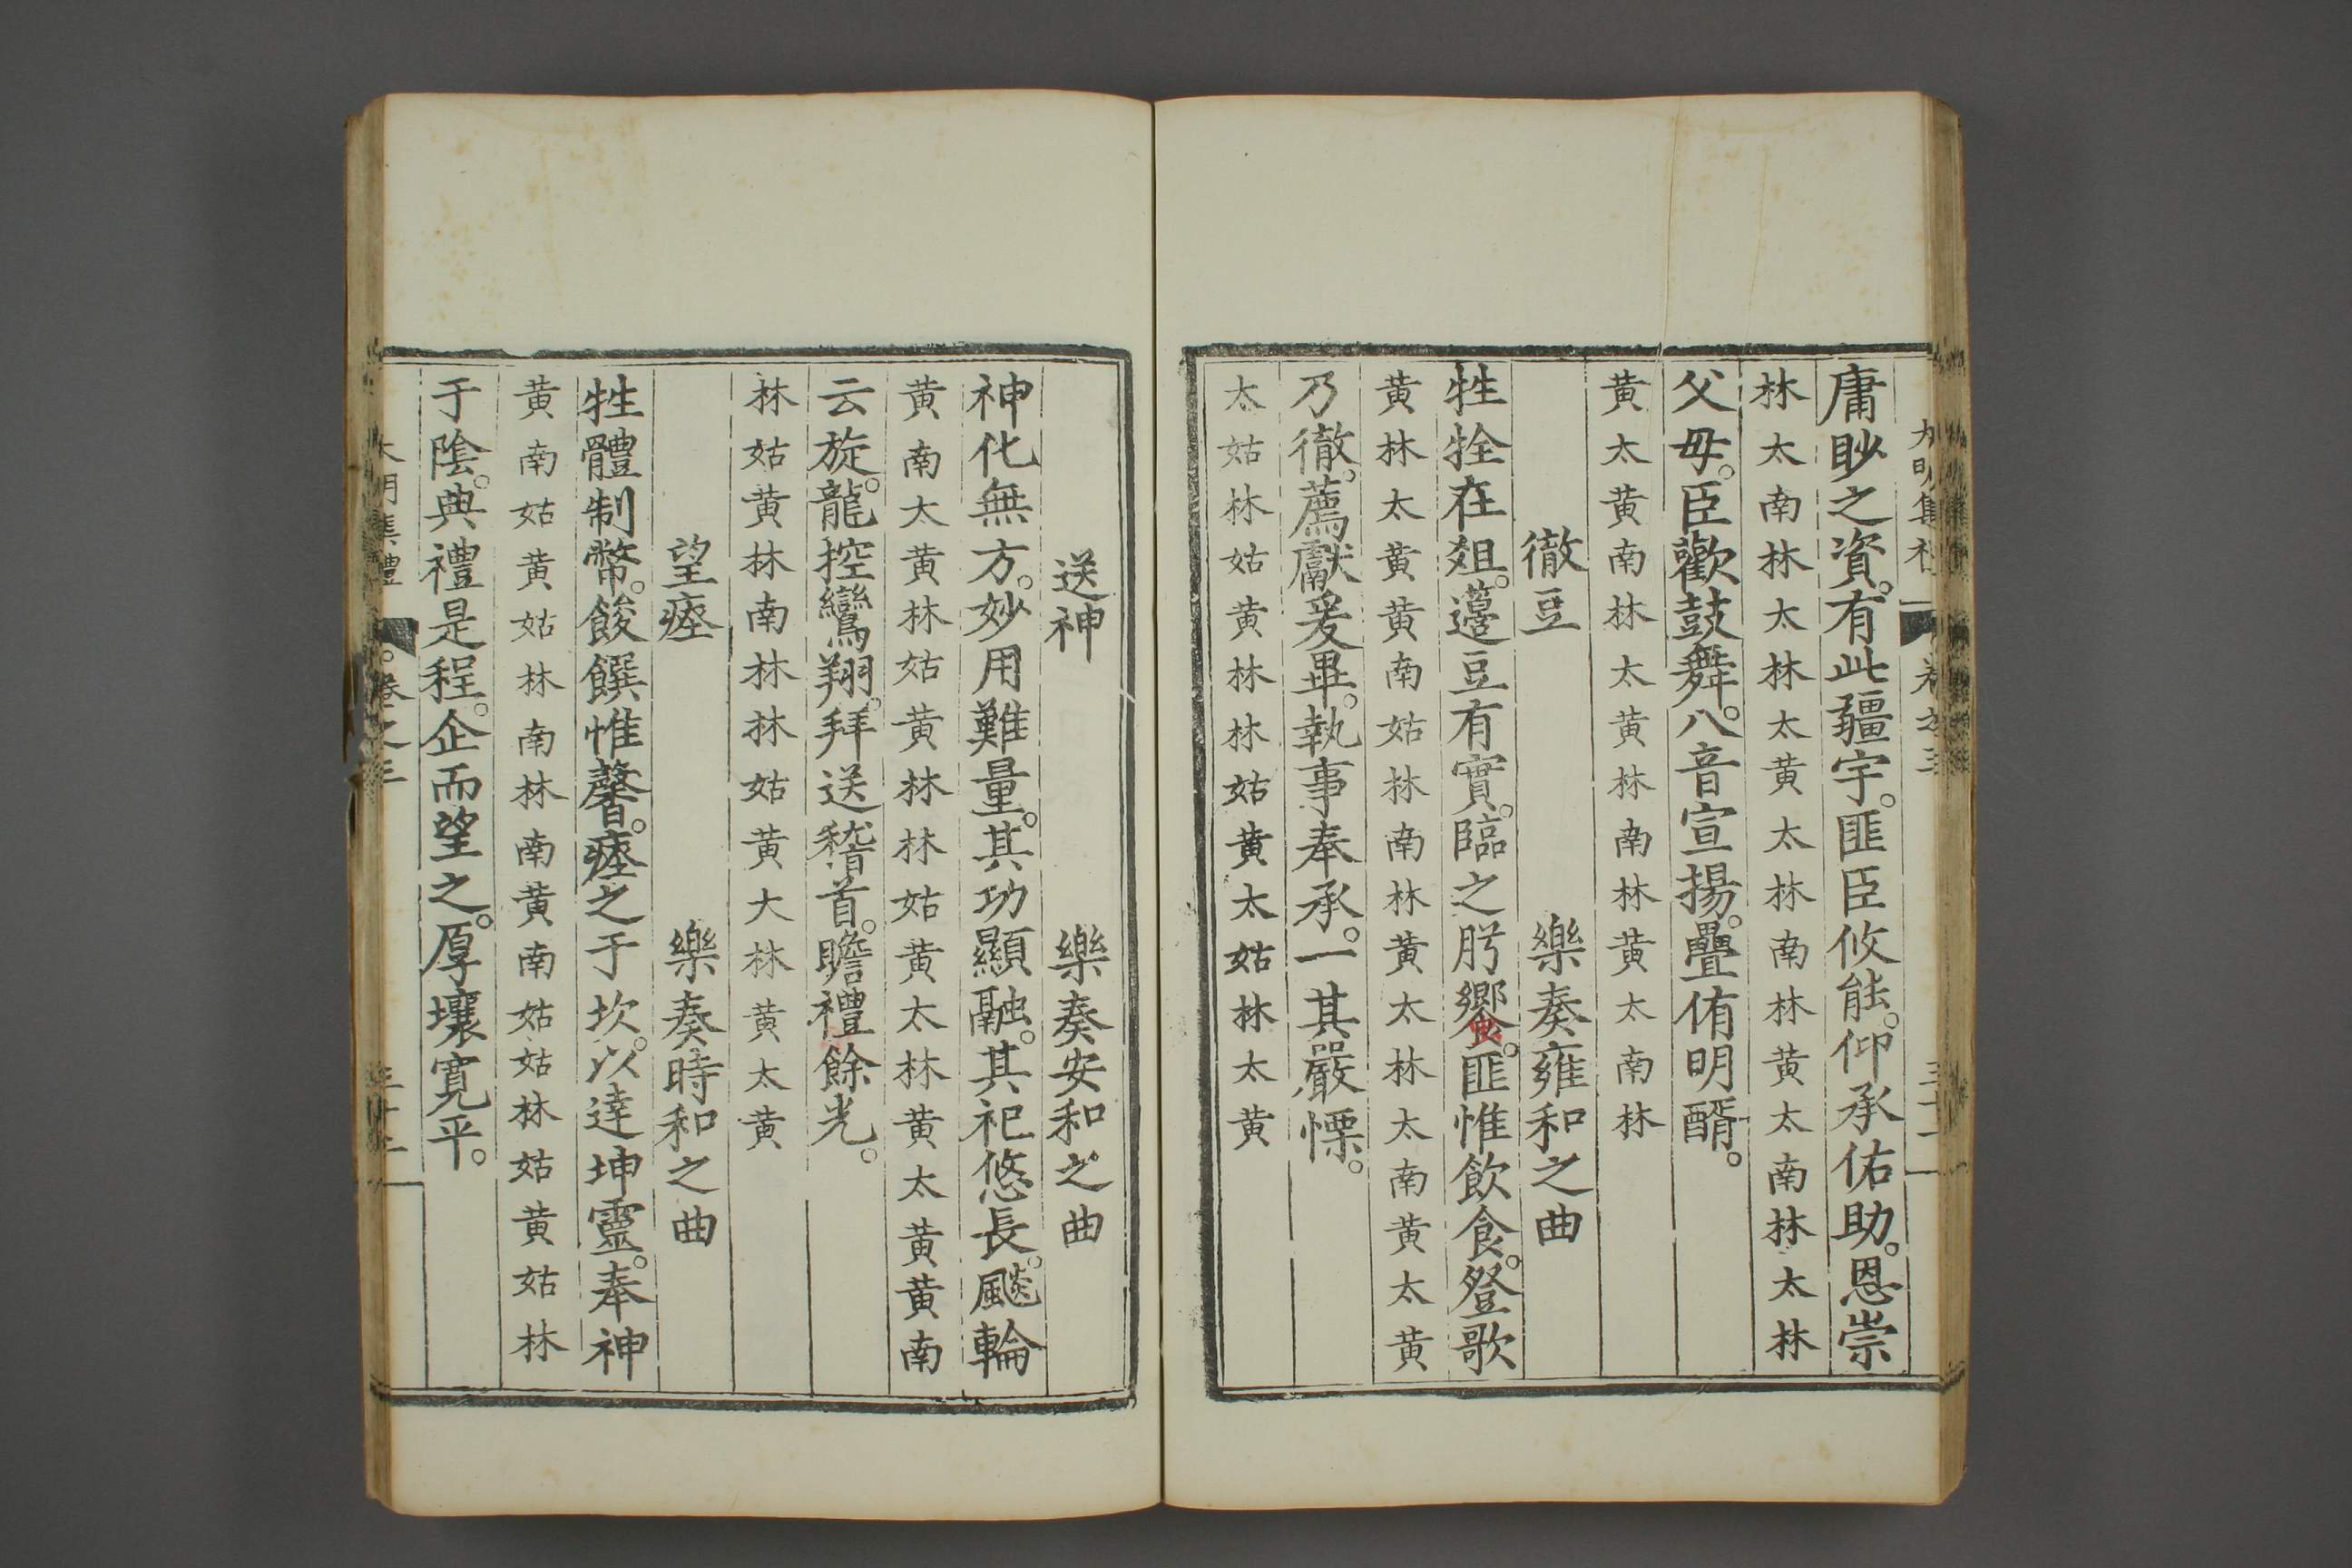 庸眇之資。有此疆宇。匪臣攸能。仰承佑助。恩崇
林太南林太林太黄太林南林黄太南林太林
父母。臣歡鼓舞。八音宣揚。疊侑明醑。
黄太黄南林太黄林南林黄太南林
徹豆　樂奏雍和之曲
牲牷在爼。籩豆有實。臨之肹饗。匪惟飲食。登歌
黄林太黄黄南姑林南林黄太林大南黄太黄
乃徹。薦獻爰畢。執事奉承。一其嚴慄。
太姑林姑黄林林姑黄太姑林太黄
送神　樂奏安和之曲
神化無方。妙用難量。其功顯融。其祀悠長。飈輪
黄南太黄林姑黄林林姑黄太林黄太黄黄南
云旋。龍控鸞翔。拜送稽首。瞻禮餘光。
林姑黄林南林林姑黄大林黄太黄
望瘞　樂奏時和之曲
牲體制幣。餕饌惟馨。瘞之于坎。以達坤靈。奉神
黄南姑黄姑林南林南黄南姑姑林姑黄姑林
于陰。典禮是程。企而望之。厚壤寬平。
大明集禮　卷之三